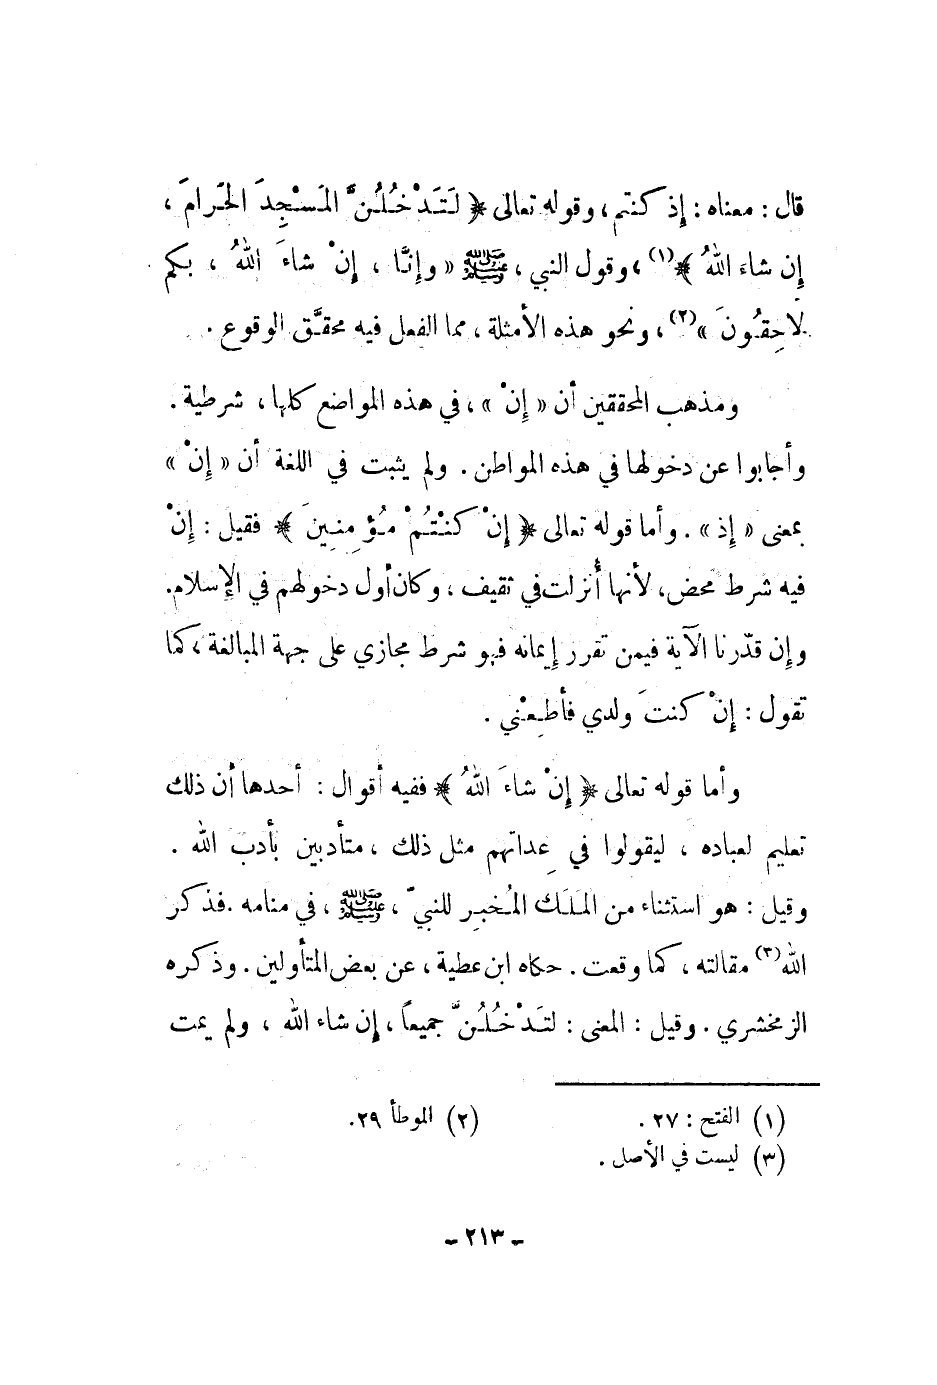 قال : معناه : إذ كنتم ، وقوله تعالى ﴿ لَتَدْخُلُنَّ المَسْجِدَ الحَرامَ ،
إن شاءَ اللهُ ﴾(١) ، وقول النبي ، ﷺ « وإنَّا ، إنْ شاءَ اللهُ ، بكم
لاحِقُونَ »(٢) ، ونحو هذه الأمثلة ، مما الفعل فيه محقَّق الوقوع .
ومذهب المحققين أن « إنْ » ، في هذه المواضع كلها ، شرطية .
وأجابوا عن دخولها في هذه المواطن . ولم يثبت في اللغة أن « إنْ »
بمعنى « إذ » . وأما قوله تعالى ﴿ إنْ كنْتُمْ مُؤمِنِينَ ﴾ فقيل : إنْ
فيه شرط محض، لأنها أُنزلت في ثقيف ، وكان أول دخولهم في الإسلام.
وإن قدّرنا الآية فيمن تقرر إيمانه فهو شرط مجازي على جهة المبالغة ، كما
تقول : إنْ كنتَ ولدي فأطِعْني .
وأما قوله تعالى ﴿ إنْ شاءَ اللهُ ﴾ ففيه أقوال : أحدها أن ذلك
تعليم لعباده ، ليقولوا في عِداتهم مثل ذلك ، متأدبين بأدب الله .
وقيل : هو استثناء من المَلَك المُخبِر للنبيّ ، ﷺ ، في منامه .فذكر
الله(٣) مقالته ، كما وقعت . حكاه ابن عطية ، عن بعض المتأولين . وذكره
الزمخشري . وقيل : المعنى : لتَدْخُلُنَّ جميعاً ، إن شاء الله ، ولم يمت
(١) الفتح : ٢٧ . (٢) الموطأ ٢٩.
(٣) ليست في الأصل .
- ٢١٣ -